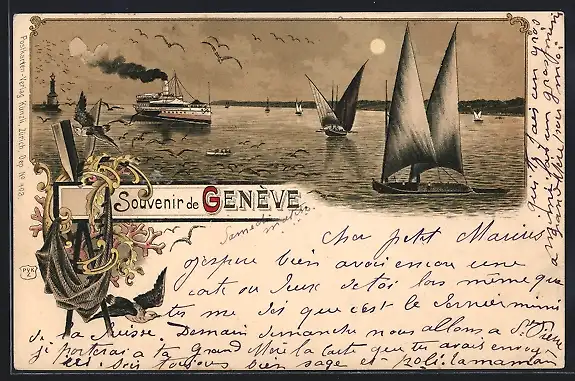 Postkarten-Verlag Künzli, Zürich, Dep. No 983
PVKZ
Souvenir de GENÈVE.
Samedi matin
Cher petit Marius
j'espère bien avoir encore une
carte ou deux de toi lors même que
tu me dis que c'est la dernière
de la Suisse. Demain dimanche nous allons a St
je porterai a ta Grand Mère la carte que tu avais envoyé
ici. Sois toujours bien sage et poli. ta maman
que tu fais un gros